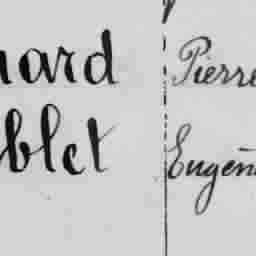 uard Pierre
blet Eugèn